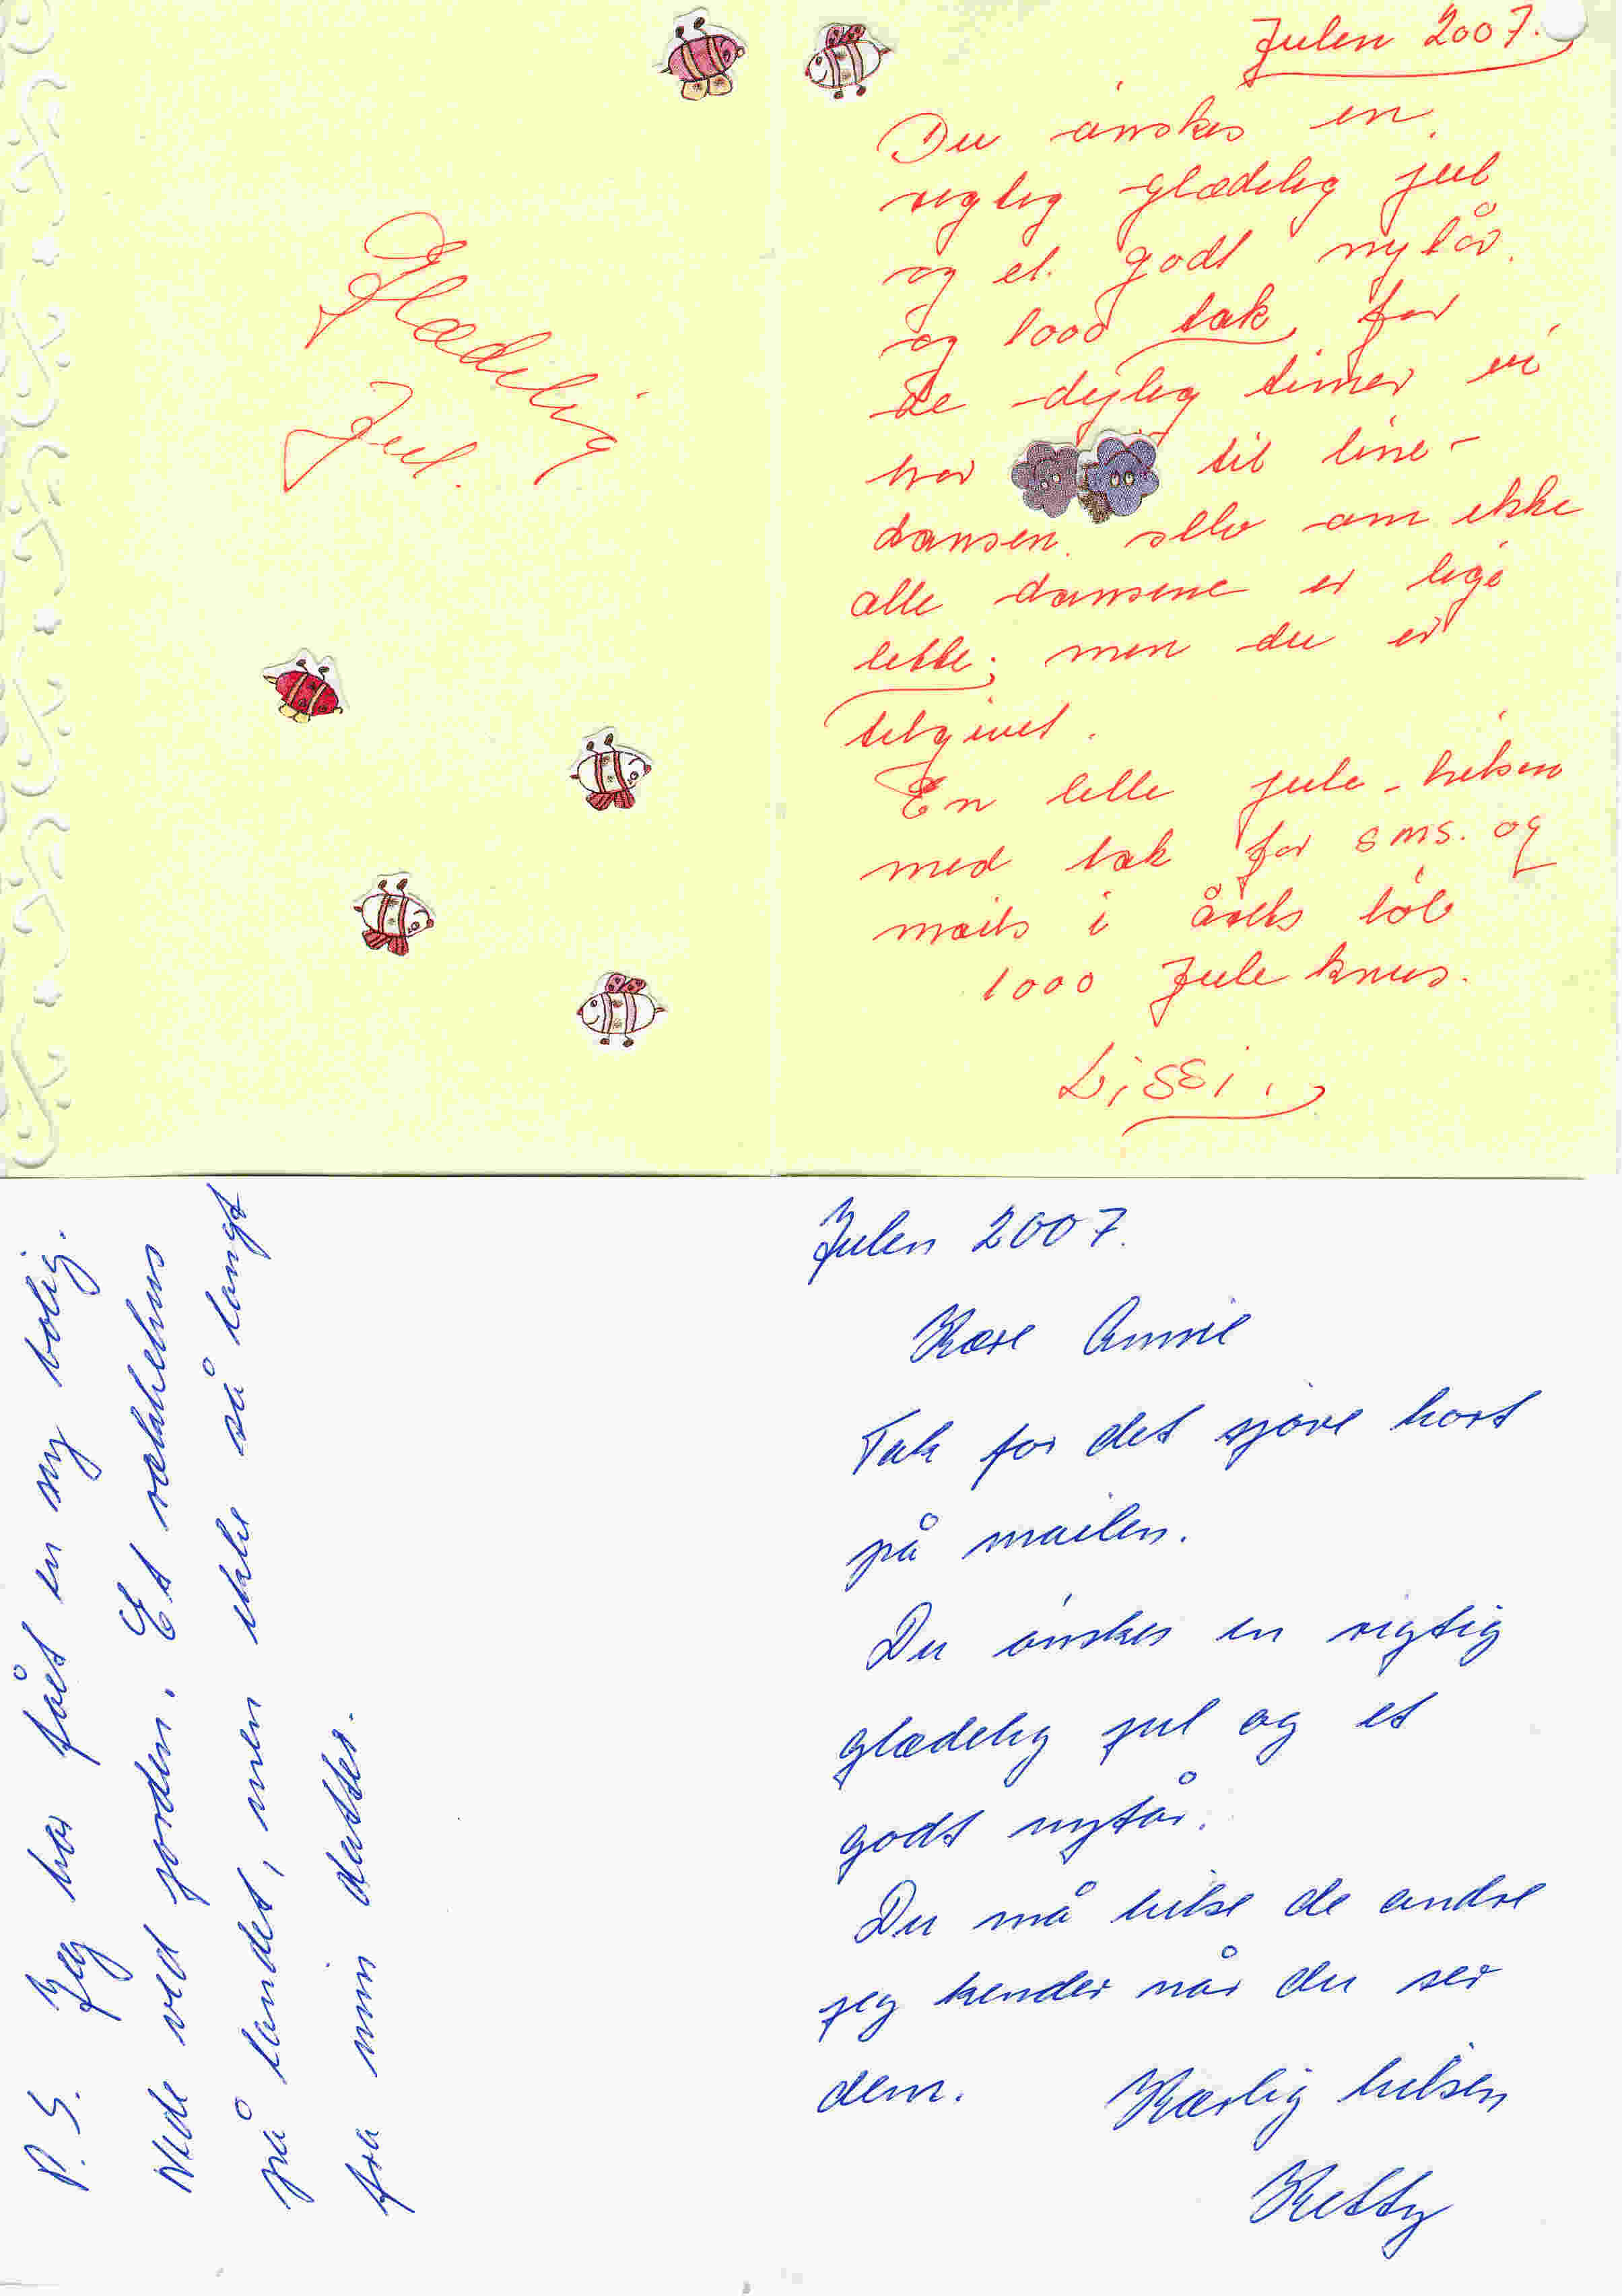 Glædelig
Jul.
Julen 2007.
Du ønskes en
rigtig glædelig jul
og et godt nytår.
og 1000 tak for
de dejlig timer vi
har til line-
dansen. selv om ikke
alle dansene er lige
lette; men du er
tilgivet.
En lille jule-hilsen
med tak for sms. og
mails i årets løb
1000 Jule knus.
Lissi.
P.S. Jeg har fået en ny bolig.
Nede ved fjorden. Et rækkehus
på landet, men ikke så langt
fra min datter.
Julen 2007.
Kære Annie
Tak for det sjove kort
på mailen.
Du ønskes en rigtig
glædelig jul og et
godt nytår.
Du må hilse de andre
jeg kender når du ser
dem. Kærlig hilsen
Ketty